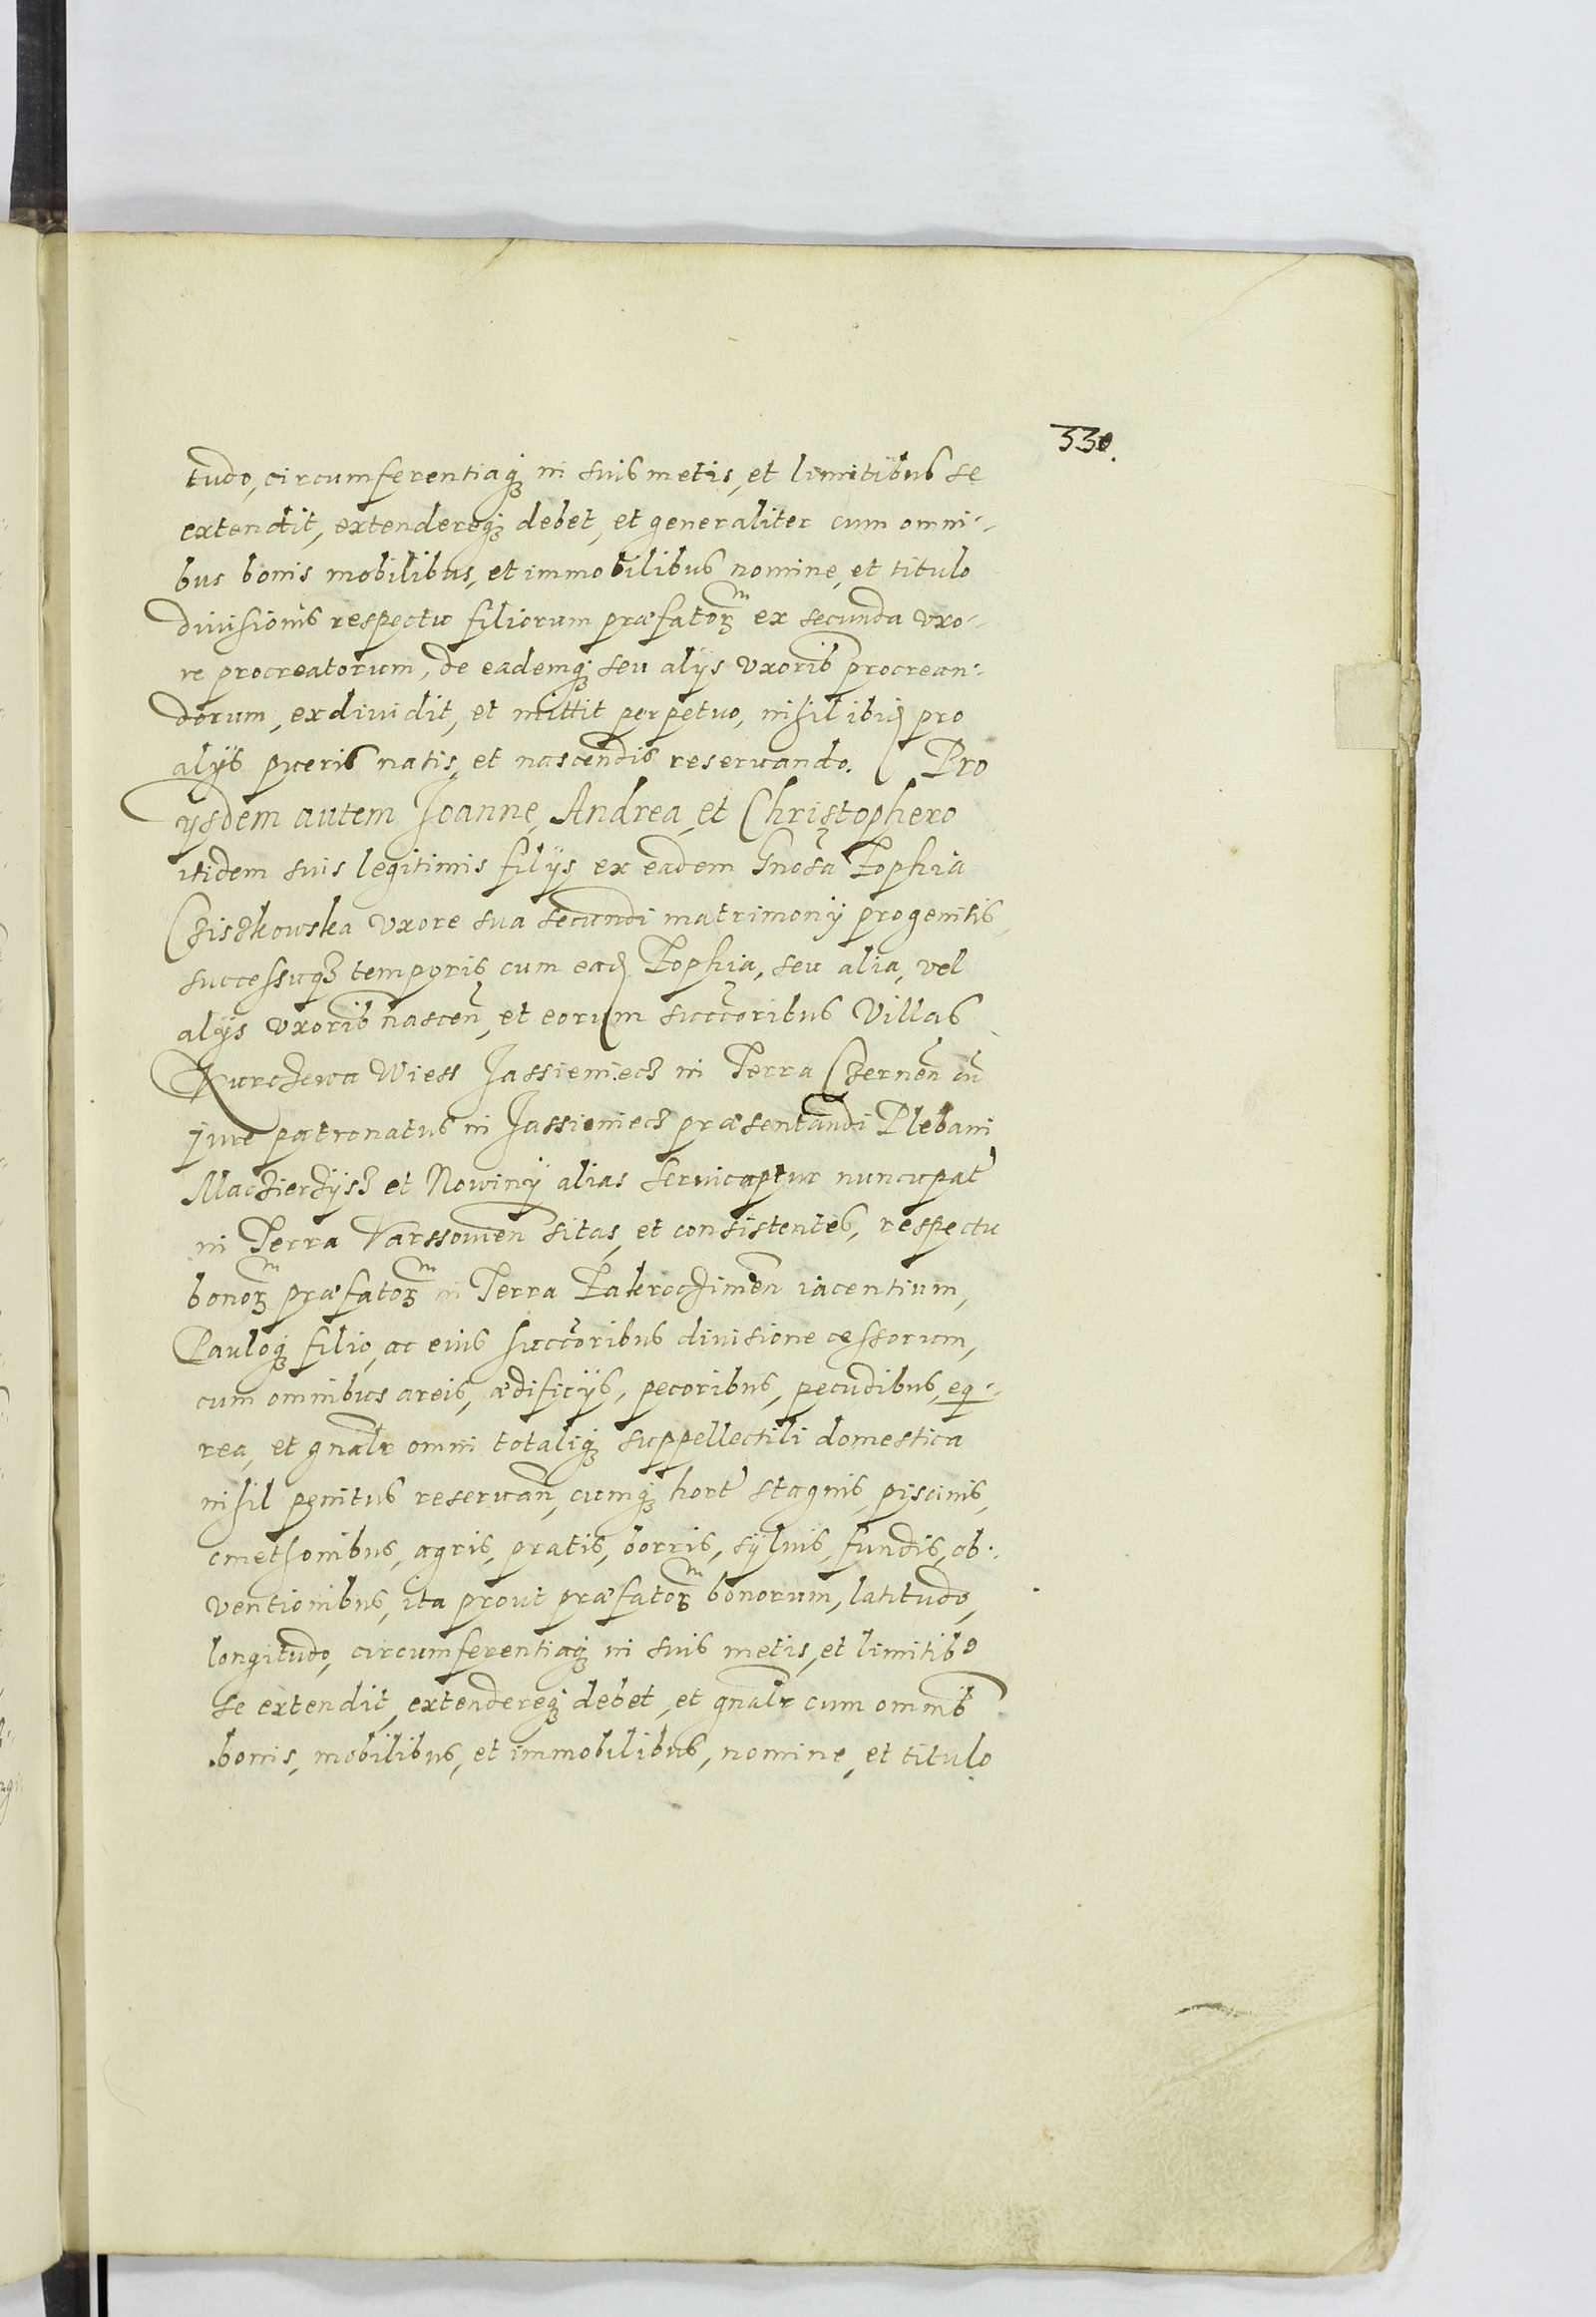 330.
tudo, circumferentiaq; in suis metis, et limitibus se
extendit, extendereq; debet, et generaliter cum omni-
bus bonis mobilibus, et immobilibus nomine, et titulo
diuisionis respectu filiorum præfatoꝝ ex secunda vxo-
re procreatorum, de eademq; seu alÿs vxorib procrean-
dorum, exdiuidit, et mittit perpetuo, nihil ibid pro
alÿs pueris natis, et nascendis reseruando. Pro
ÿsdem autem Joanne, Andrea, et Christophero
itidem suis legitimis filÿs ex eadem Gnosa Zophia
Cziszkowska vxore sua secundi matrimonÿ progenitis,
successuq; temporis cum ead Zophia, seu alia, vel
alÿs vxorib nascen, et eorum succoribus Villas
Kurczewa Wiess Jassieniecz in Terra Czernen cu
jure patronatus in Jassieniecz præsentandi Plebani
Maczierzÿsz et Nowinÿ alias Seruicaptur nuncupat
in Terra Varssouien sitas, et consistentes, respectu
bonoꝝ præfatoꝝ in Terra Zakroczimen iacentium,
Pauloq; filio, ac eius succoribus diuisione cessorum,
cum omnibus areis, ædificÿs, pecoribus, pecudibus, eq-
rea, et gnalr omni totaliq; suppellectili domestica
nihil penitus reseruan, cumq; hort stagnis, piscinis,
cmethonibus, agris, pratis, borris, sÿluis, fundis, ob-
ventionibus, ita prout præfatoꝝ bonorum, latitudo,
longitudo, circumferentiaq; in suis metis, et limitib9
se extendit, extendereq; debet, et gnalr cum omnib
bonis, mobilibus, et immobilibus, nomine, et titulo